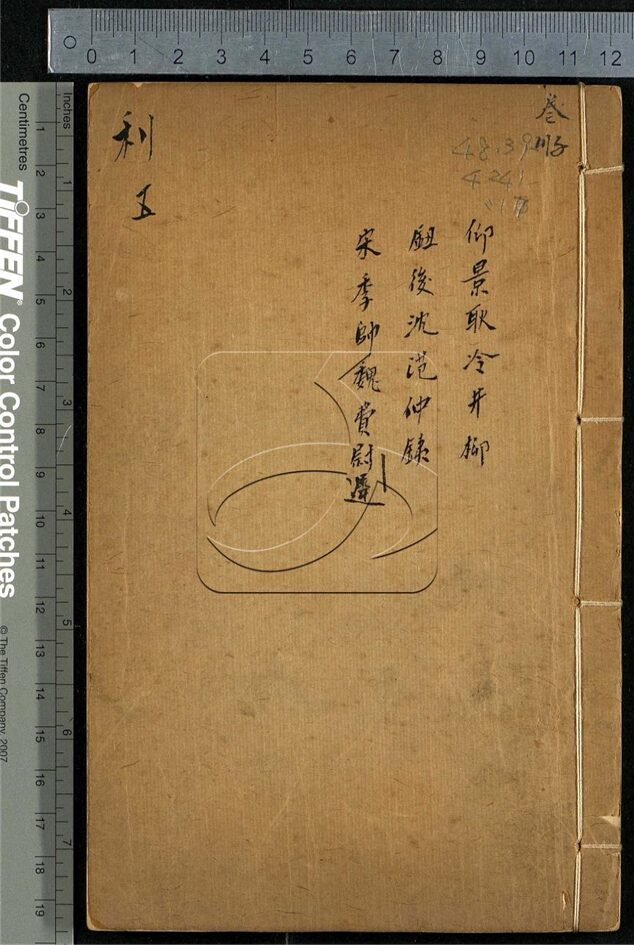 0 1 2 3 4 5 6 7 8 9 10 11 12
Centimetres
Inches
1 2 3 4 5 6 7 8 9 10 11 12 13 14 15 16 17 18 19
1 2 3 4 5 6 7
TIFFEN® Color Control Patches
© The Tiffen Company, 2007
卷
48.39
4241
仰景耿冷井柳
鈕後沈范仲錢
宋季帥魏費尉遲
利
五